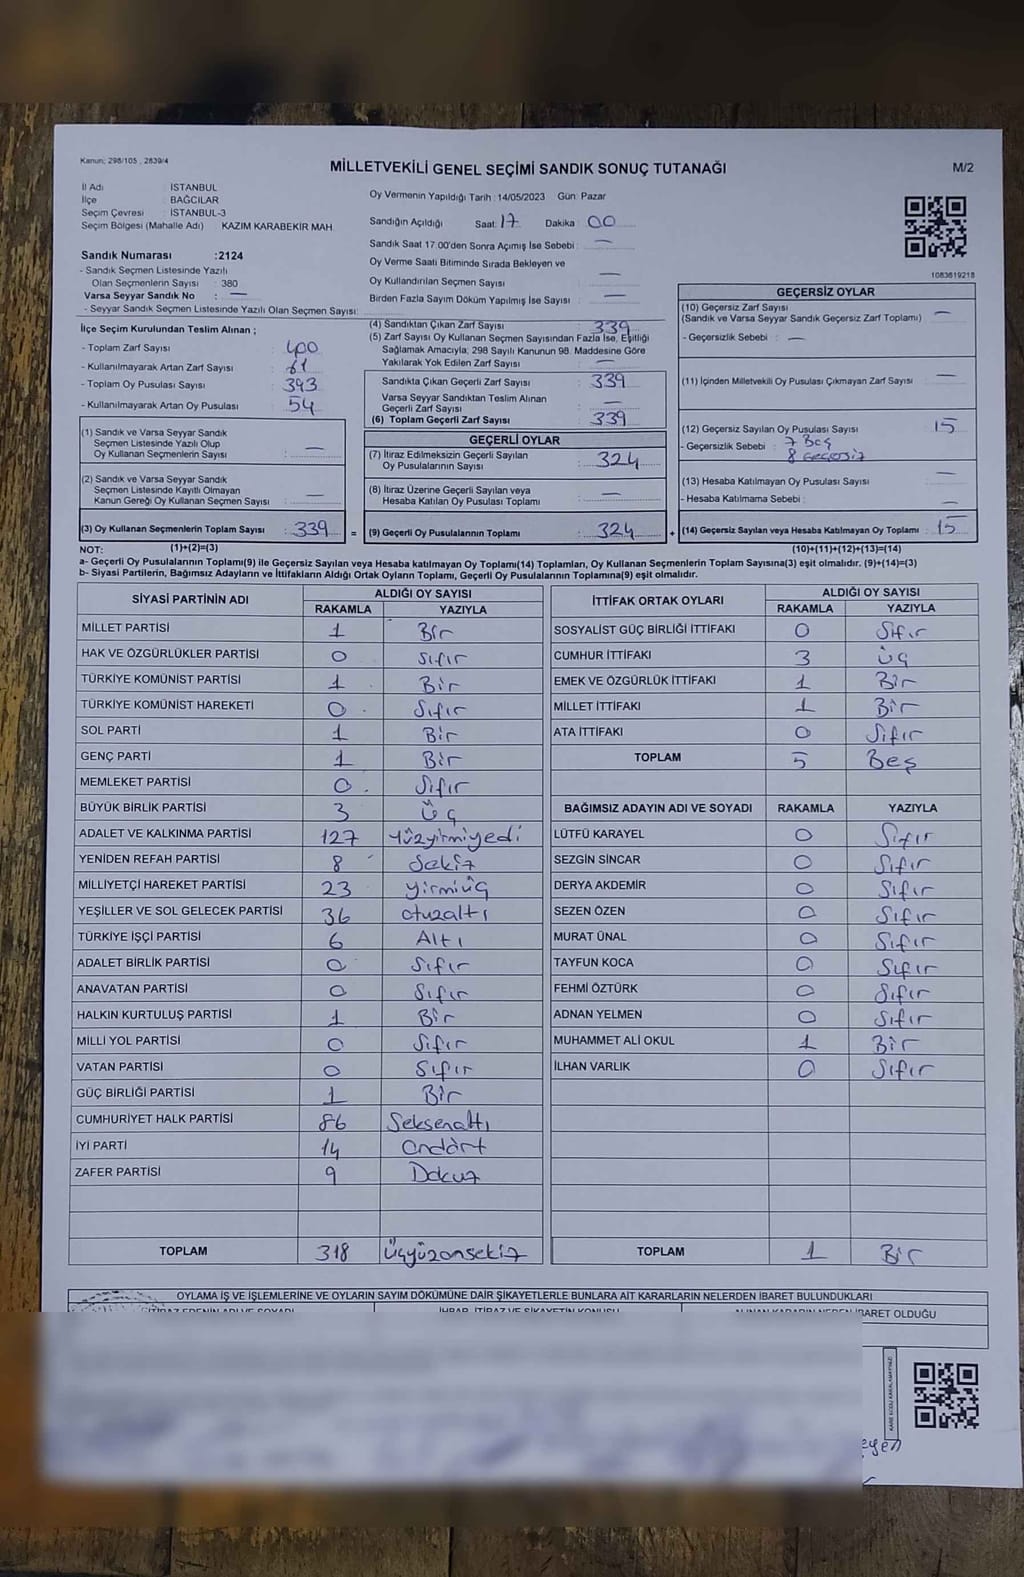 Kanun; 298/105 , 2839/4
MİLLETVEKİLİ GENEL SEÇİMİ SANDIK SONUÇ TUTANAĞI
M/2
İl Adı : İSTANBUL
İlçe : BAĞCILAR
Seçim Çevresi : İSTANBUL-3
Seçim Bölgesi (Mahalle Adı) KAZIM KARABEKİR MAH.
Sandık Numarası :2124
- Sandık Seçmen Listesinde Yazılı
Olan Seçmenlerin Sayısı : 380
Varsa Seyyar Sandık No : —
- Seyyar Sandık Seçmen Listesinde Yazılı Olan Seçmen Sayısı:
Oy Vermenin Yapıldığı Tarih :14/05/2023 Gün: Pazar
Sandığın Açıldığı Saat: 17 Dakika : 00
Sandık Saat 17:00'den Sonra Açımış İse Sebebi : —
Oy Verme Saati Bitiminde Sırada Bekleyen ve
Oy Kullandırılan Seçmen Sayısı : —
Birden Fazla Sayım Döküm Yapılmış İse Sayısı : —
1083619218
İlçe Seçim Kurulundan Teslim Alınan ;
- Toplam Zarf Sayısı : 400
- Kullanılmayarak Artan Zarf Sayısı : 61
- Toplam Oy Pusulası Sayısı : 393
- Kullanılmayarak Artan Oy Pusulası : 54
(1) Sandık ve Varsa Seyyar Sandık
Seçmen Listesinde Yazılı Olup
Oy Kullanan Seçmenlerin Sayısı : —
(2) Sandık ve Varsa Seyyar Sandık
Seçmen Listesinde Kayıtlı Olmayan
Kanun Gereği Oy Kullanan Seçmen Sayısı : —
(3) Oy Kullanan Seçmenlerin Toplam Sayısı : 339
(4) Sandıktan Çıkan Zarf Sayısı : 339
(5) Zarf Sayısı Oy Kullanan Seçmen Sayısından Fazla İse, Eşitliği
Sağlamak Amacıyla, 298 Sayılı Kanunun 98. Maddesine Göre
Yakılarak Yok Edilen Zarf Sayısı : —
Sandıkta Çıkan Geçerli Zarf Sayısı : 339
Varsa Seyyar Sandıktan Teslim Alınan
Geçerli Zarf Sayısı : —
(6) Toplam Geçerli Zarf Sayısı : 339
GEÇERLİ OYLAR
(7) İtiraz Edilmeksizin Geçerli Sayılan
Oy Pusulalarının Sayısı : 324
(8) İtiraz Üzerine Geçerli Sayılan veya
Hesaba Katılan Oy Pusulası Toplamı : —
= (9) Geçerli Oy Pusulalarının Toplamı : 324
GEÇERSİZ OYLAR
(10) Geçersiz Zarf Sayısı
(Sandık ve Varsa Seyyar Sandık Geçersiz Zarf Toplamı) : —
- Geçersizlik Sebebi : —
(11) İçinden Milletvekili Oy Pusulası Çıkmayan Zarf Sayısı : —
(12) Geçersiz Sayılan Oy Pusulası Sayısı : 15
- Geçersizlik Sebebi : 7 Boş
8 Geçersiz
(13) Hesaba Katılmayan Oy Pusulası Sayısı : —
- Hesaba Katılmama Sebebi : —
+ (14) Geçersiz Sayılan veya Hesaba Katılmayan Oy Toplamı : 15
NOT: (1)+(2)=(3) (10)+(11)+(12)+(13)=(14)
a- Geçerli Oy Pusulalarının Toplamı(9) ile Geçersiz Sayılan veya Hesaba katılmayan Oy Toplamı(14) Toplamları, Oy Kullanan Seçmenlerin Toplam Sayısına(3) eşit olmalıdır. (9)+(14)=(3)
b- Siyasi Partilerin, Bağımsız Adayların ve İttifakların Aldığı Ortak Oyların Toplamı, Geçerli Oy Pusulalarının Toplamına(9) eşit olmalıdır.
SİYASİ PARTİNİN ADI ALDIĞI OY SAYISI
RAKAMLA YAZIYLA
MİLLET PARTİSİ 1 Bir
HAK VE ÖZGÜRLÜKLER PARTİSİ 0 Sıfır
TÜRKİYE KOMÜNİST PARTİSİ 1 Bir
TÜRKİYE KOMÜNİST HAREKETİ 0 Sıfır
SOL PARTİ 1 Bir
GENÇ PARTİ 1 Bir
MEMLEKET PARTİSİ 0 Sıfır
BÜYÜK BİRLİK PARTİSİ 3 Üç
ADALET VE KALKINMA PARTİSİ 127 Yüzyirmiyedi
YENİDEN REFAH PARTİSİ 8 Sekiz
MİLLİYETÇİ HAREKET PARTİSİ 23 yirmiüç
YEŞİLLER VE SOL GELECEK PARTİSİ 36 otuzaltı
TÜRKİYE İŞÇİ PARTİSİ 6 Altı
ADALET BİRLİK PARTİSİ 0 Sıfır
ANAVATAN PARTİSİ 0 Sıfır
HALKIN KURTULUŞ PARTİSİ 1 Bir
MİLLİ YOL PARTİSİ 0 Sıfır
VATAN PARTİSİ 0 Sıfır
GÜÇ BİRLİĞİ PARTİSİ 1 Bir
CUMHURİYET HALK PARTİSİ 86 Seksenaltı
İYİ PARTİ 14 Ondört
ZAFER PARTİSİ 9 Dokuz
TOPLAM 318 Üçyüzonsekiz
İTTİFAK ORTAK OYLARI ALDIĞI OY SAYISI
RAKAMLA YAZIYLA
SOSYALİST GÜÇ BİRLİĞİ İTTİFAKI 0 Sıfır
CUMHUR İTTİFAKI 3 Üç
EMEK VE ÖZGÜRLÜK İTTİFAKI 1 Bir
MİLLET İTTİFAKI 1 Bir
ATA İTTİFAKI 0 Sıfır
TOPLAM 5 Beş
BAĞIMSIZ ADAYIN ADI VE SOYADI RAKAMLA YAZIYLA
LÜTFÜ KARAYEL 0 Sıfır
SEZGİN SİNCAR 0 Sıfır
DERYA AKDEMİR 0 Sıfır
SEZEN ÖZEN 0 Sıfır
MURAT ÜNAL 0 Sıfır
TAYFUN KOCA 0 Sıfır
FEHMİ ÖZTÜRK 0 Sıfır
ADNAN YELMEN 0 Sıfır
MUHAMMET ALİ OKUL 1 Bir
İLHAN VARLIK 0 Sıfır
TOPLAM 1 Bir
OYLAMA İŞ VE İŞLEMLERİNE VE OYLARIN SAYIM DÖKÜMÜNE DAİR ŞİKAYETLERLE BUNLARA AİT KARARLARIN NELERDEN İBARET BULUNDUKLARI
İTİRAZ EDENİN ADI VE SOYADI İHBAR, İTİRAZ VE ŞİKAYETİN KONUSU ALINAN KARARIN NEDEN İBARET OLDUĞU